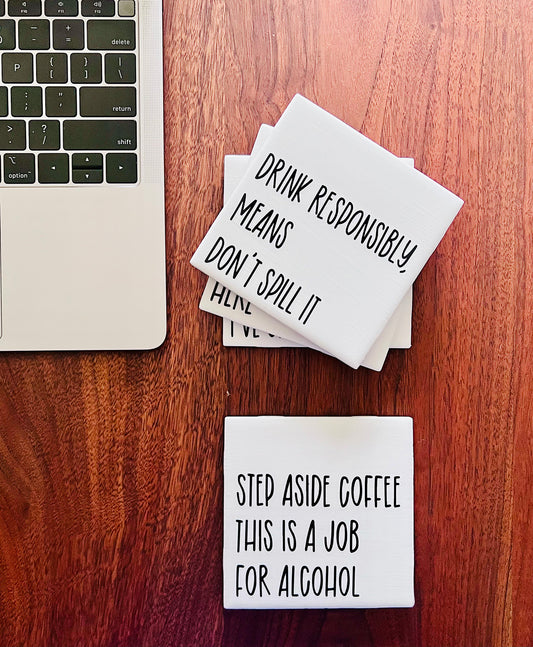 delete
return
shift
option
DRINK RESPONSIBLY,
MEANS
DON'T SPILL IT
HERE
I'VE
STEP ASIDE COFFEE
THIS IS A JOB
FOR ALCOHOL